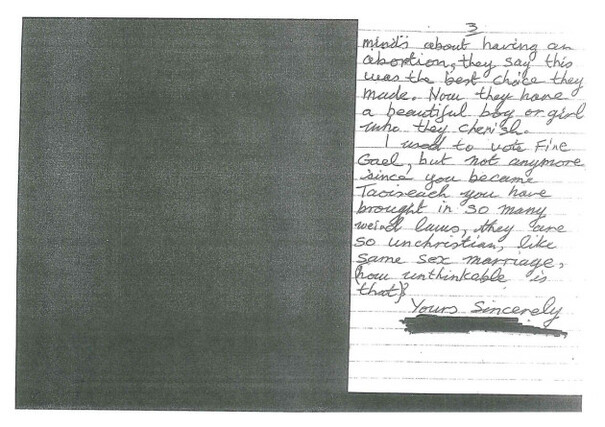 3
minds about having an
abortion, they say this
was the best choice they
made. Now they have
a beautiful boy or girl
who they cherish.
I used to vote Fine
Gael, but not anymore
since you became
Taoiseach you have
brought in so many
weird laws, they are
so unchristian, like
same sex marriage,
(how unthinkable is
that)?
Yours Sincerely